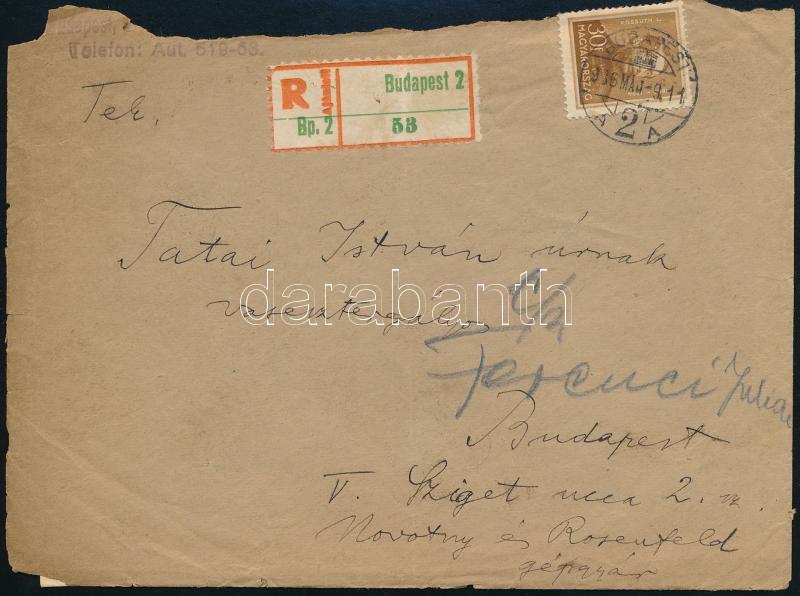 Budapest,
Telefon: Aut. 519-53.
R
Ajánlott
Budapest 2
Bp. 2
53
KOSSUTH L.
30f
MAGYARORSZÁG
BUDAPEST
936 MÁJ -9. 11
A 2 A
Tek.
Tatai István úrnak
vasesztergályos
c/a
Ferenczi Julia
Budapest
V. Sziget ucca 2. sz
Novotny és Rosenfeld
gépgyár
darabanth